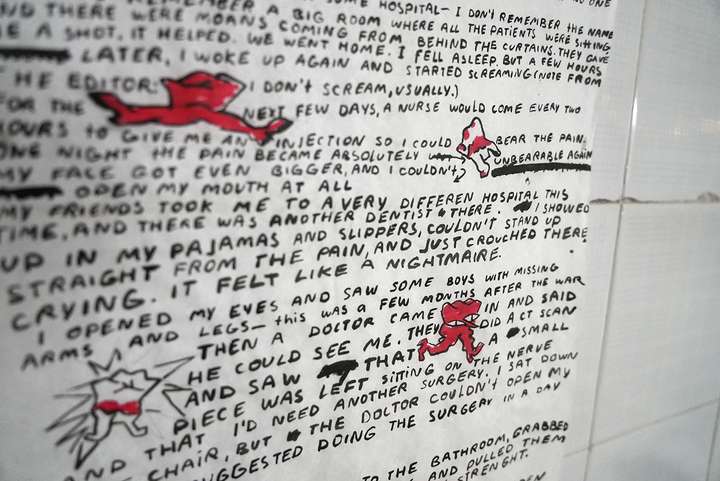 REMEMBER A SOME HOSPITAL— I DON'T REMEMBER THE NAME
ND THERE WERE A BIG ROOM WHERE ALL THE PATIENTS WERE SITTING,
MOANS COMING FROM BEHIND THE CURTAINS. THEY GAVE
E A SHOT, IT HELPED. WE WENT HOME. I FELL ASLEEP, BUT A FEW HOURS
LATER, I WOKE UP AGAIN AND STARTED SCREAMING (NOTE FROM
HE EDITOR: I DON'T SCREAM, USUALLY.)
FOR THE NEXT FEW DAYS, A NURSE WOULD COME EVERY TWO
OURS to GIVE ME AN INJECTION SO I COULD BEAR THE PAIN.
ONE NIGHT tHE PAIN BECAME ABSOLUTELY UNBEARABLE AGAIN
MY FACE GOT EVEN BIGGER, AND I COULDN'T
OPEN MY MOUTH AT ALL
MY FRIENDS TOOK ME TO A VERY DIFFEREN HOSPITAL THIS
TIME, AND THERE WAS ANOTHER DENTIST THERE. I SHOWED
UP IN MY PAJAMAS AND SLIPPERS, COULDN'T STAND UP
STRAIGHT FROM THE PAIN, AND JUST CROUCHED THERE
CRYING. IT FELT LIKE A NIGHTMAIRE.
I OPENED MY EYES AND SAW SOME BOYS WITH MISSING
ARMS AND LEGS— this WAS A FEW MONTHS AFTER THE WAR
THEN A DOCTOR CAME IN AND SAID
HE COULD SEE ME. THEY DID A CT SCAN
AND SAW THAT A SMALL
PIECE WAS LEFT SITTING ON THE NERVE
AND THAT I'D NEED ANOTHER SURGERY. I SAT DOWN
CHAIR, BUT THE DOCTOR COULDN'T OPEN MY
SUGGESTED DOING THE SURGERY IN A DAY
TO THE BATHROOM, GRABBED
AND PULLED THEM
STRENGHT.